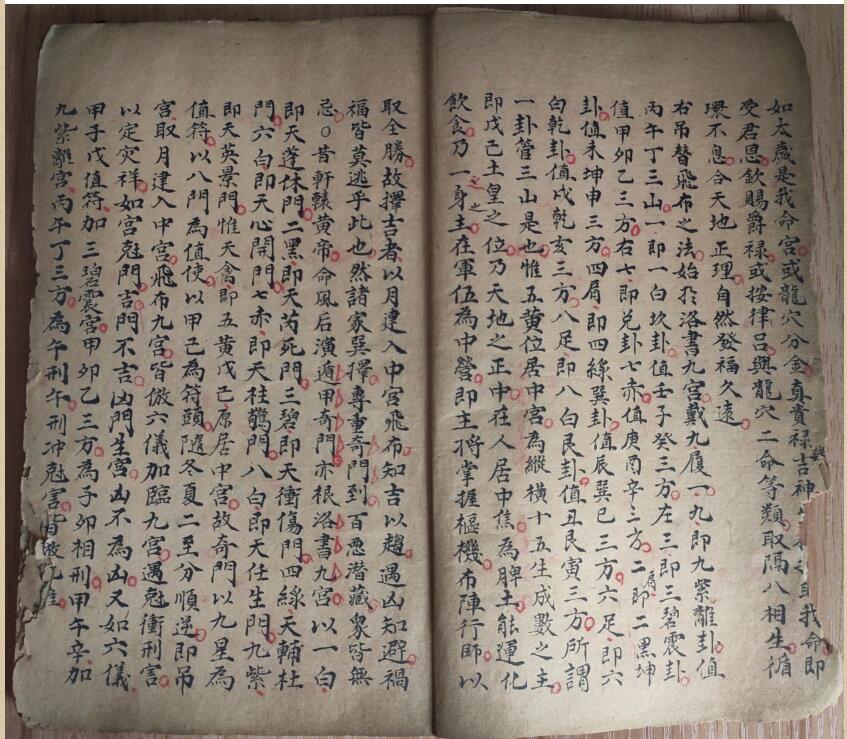 如太歲是我命宫或龍穴分金真貴禄吉神我命即
受君恩欽賜爵禄或按律吕與龍穴二命等類取隔八相生循
環不息合天地正理自然發福久遠
右吊替飛布之法始於洛書九宫戴九履一九即九紫離卦值
丙午丁三山一即一白坎卦值壬子癸三方左三即三碧震卦
值甲卯乙三方右七即兌卦七赤值庚酉辛三方二肩即二黑坤
卦值未坤申三方四肩即四綠巽卦值辰巽巳三方六足即六
白乾卦值戌乾亥三方八足即八白艮卦值丑艮寅三方所謂
一卦管三山是也惟五黄位居中宫為縱横十五生成數之主
即戊己土皇之位乃天地之正中在人居中焦為脾土能運化
飲食乃一身之主在軍伍為中營即主將掌握樞機布陣行師以
取全勝故擇吉者以月建入中宫飛布知吉以趨遇凶知避禍
福皆莫逃乎此也然諸家巽擇尊重奇門到百悪潜藏衆皆無
忌○昔軒轅黄帝命風后演遁甲奇門亦根洛書九宫以一白
即天蓬休門二黑即天芮死門三碧即天衝傷門四綠天輔杜
門六白即天心開門七赤即天柱驚門八白即天任生門九紫
即天英景門惟天禽即五黄戊己原居中宫故奇門以九星為
值符以八門為值使以甲己為符頭隨冬夏二至分順逆即吊
宫取月建入中宫飛布九宫皆倣六儀加臨九宫遇尅衝刑害
以定灾祥如宫尅門吉門不吉凶門生宫凶不為凶又如六儀
甲子戊值符加三碧震宫甲卯乙三方為子卯相刑甲午辛加
九紫離宫丙午丁三方為午刑午刑冲尅害皆倣此推